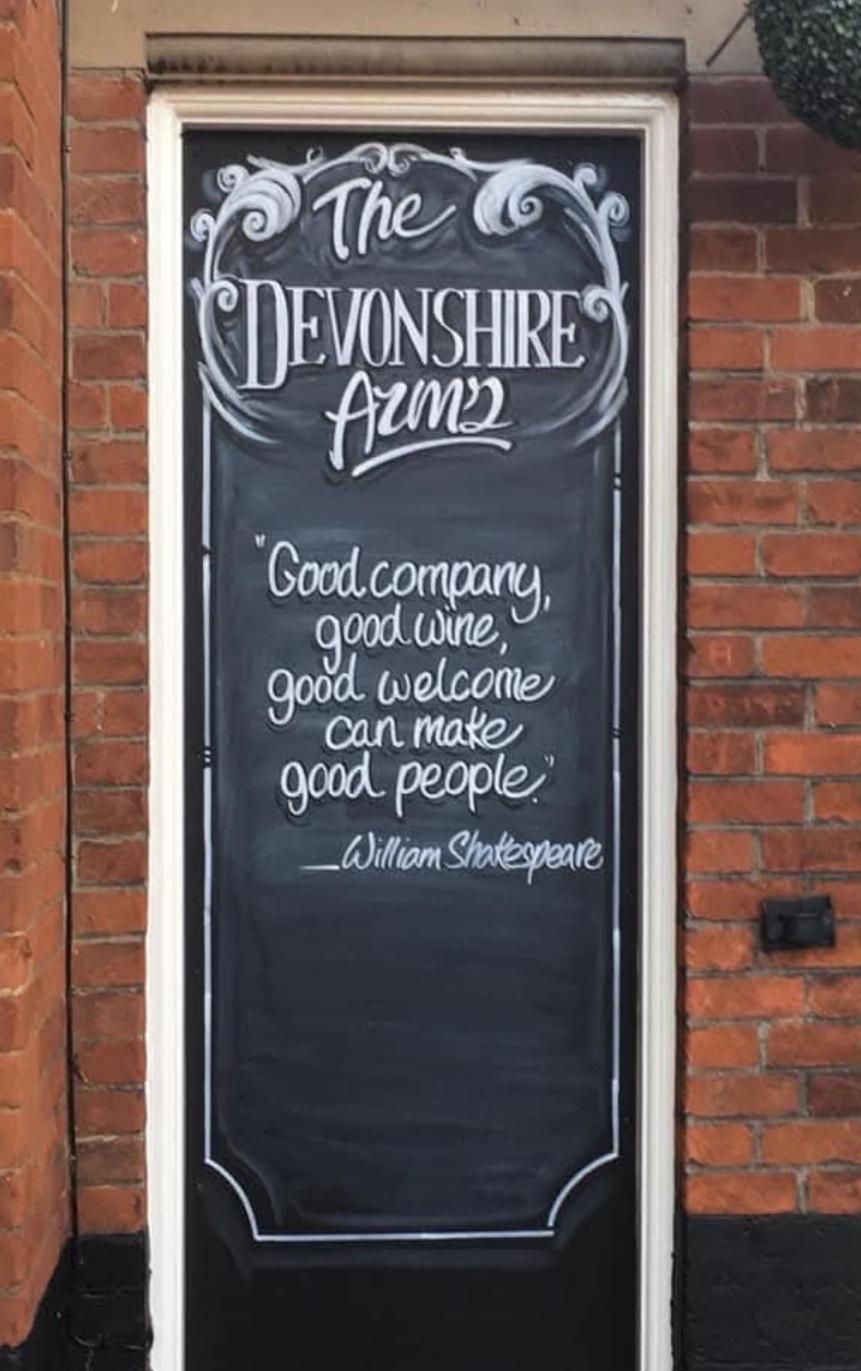 The
DEVONSHIRE
Arms
"Good company,
good wine,
good welcome
can make
good people."
_William Shakespeare